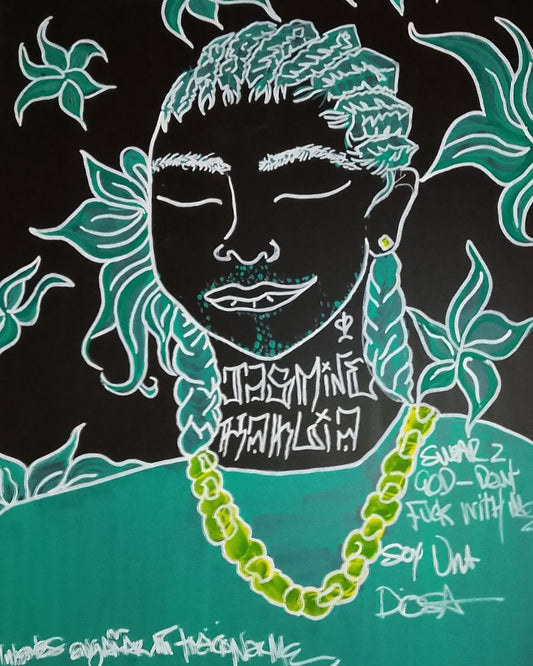 JESMINE
HAKLIA
SWEAR 2
GOD - DON'T
FUCK WITH ME
SOY UNA
DIOSA